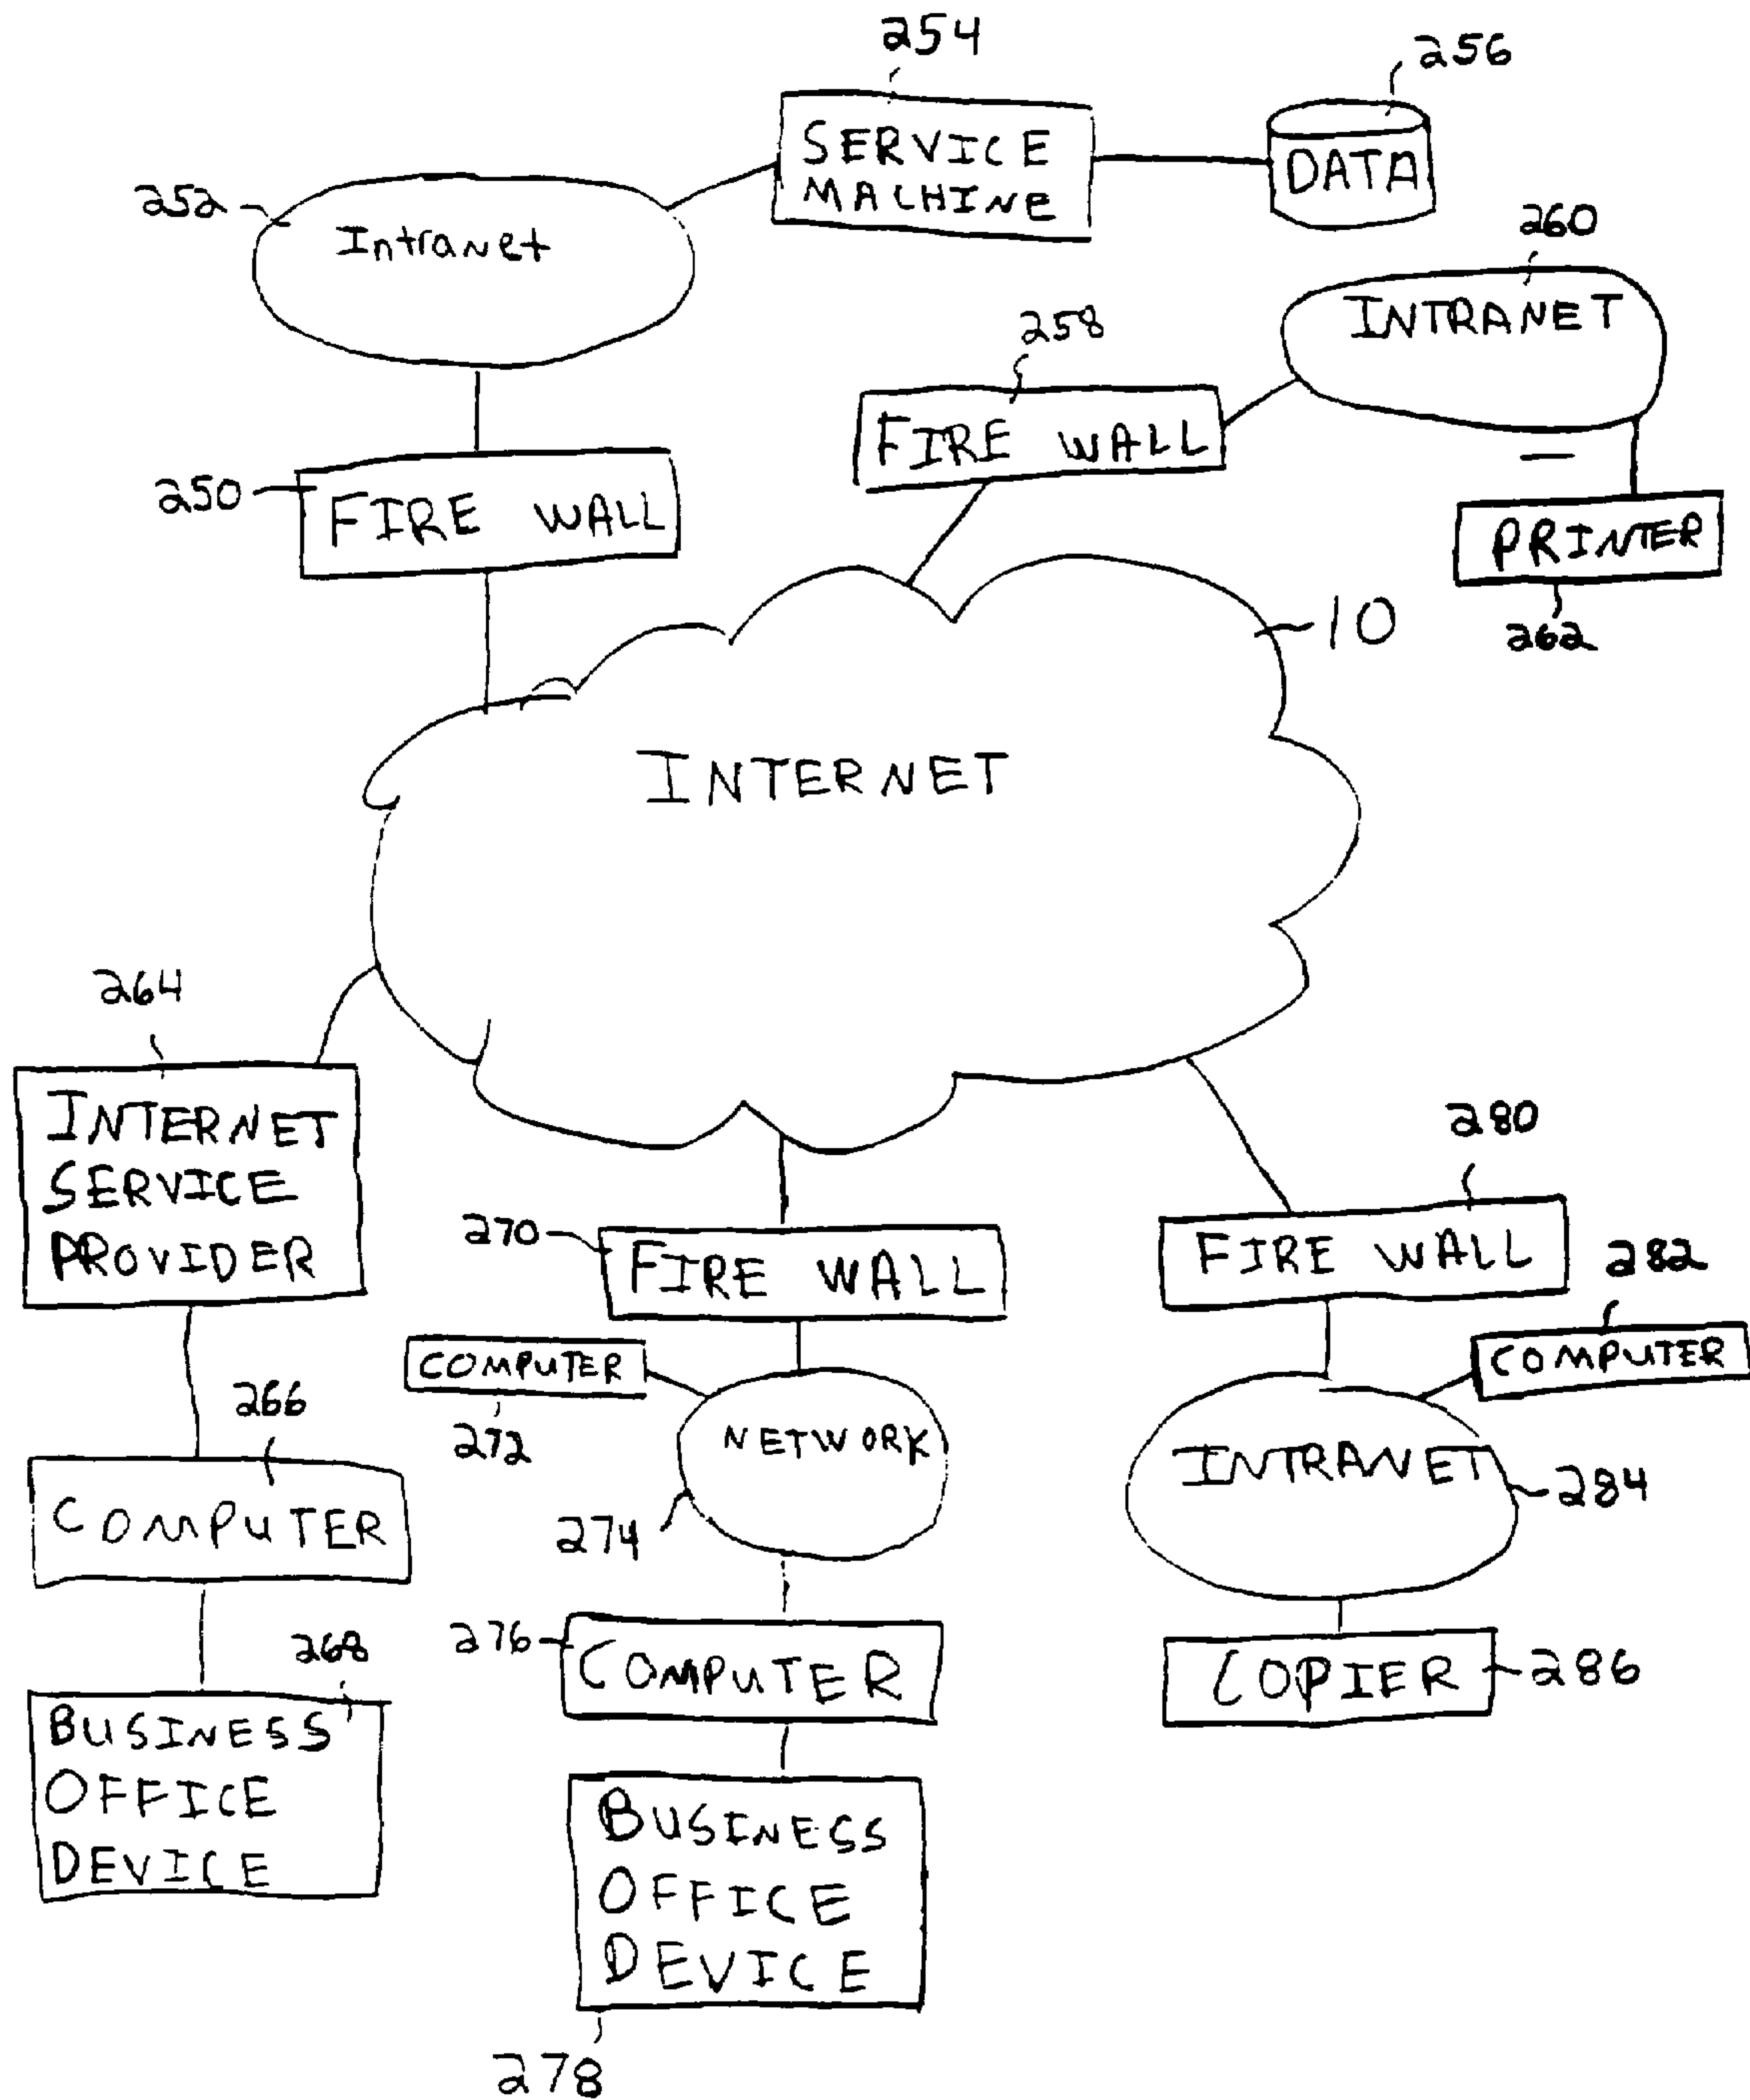 254
256
SERVICE
MACHINE
DATA
252
Intranet
260
INTRANET
258
FIRE WALL
250
FIRE WALL
PRINTER
262
10
INTERNET
264
INTERNET
SERVICE
PROVIDER
280
270
FIRE WALL
FIRE WALL
282
COMPUTER
COMPUTER
266
272
NETWORK
INTRANET
284
COMPUTER
274
276
COMPUTER
COPIER
286
268
BUSINESS
OFFICE
DEVICE
BUSINESS
OFFICE
DEVICE
278